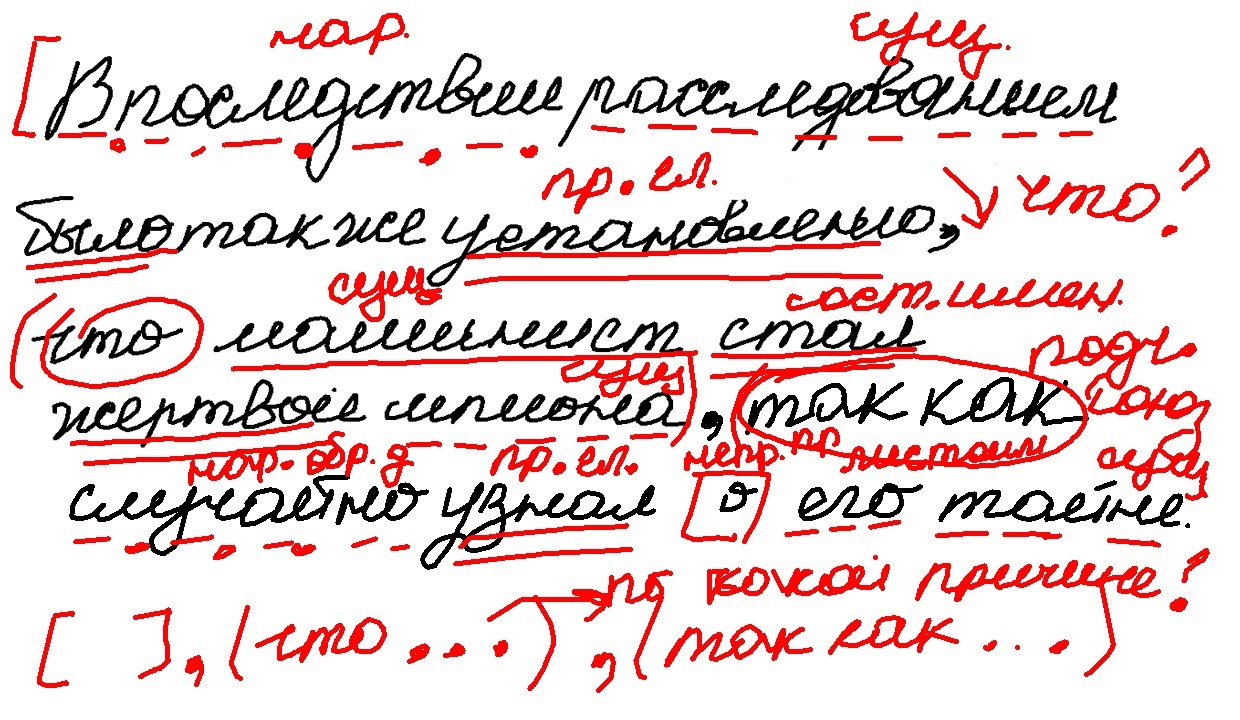 нар. сущ.
[Впоследствии расследованием
пр. гл. что?
было также установлено,
сущ. сост. имен.
(что машинист стал
сущ подч.
жертвой шпиона), (так как союз
нар. обр. д пр. гл. непр. пр. местоим сущ
случайно узнал [о] его тайне.
по какой причине?
[ ], (что ...), (так как ...)